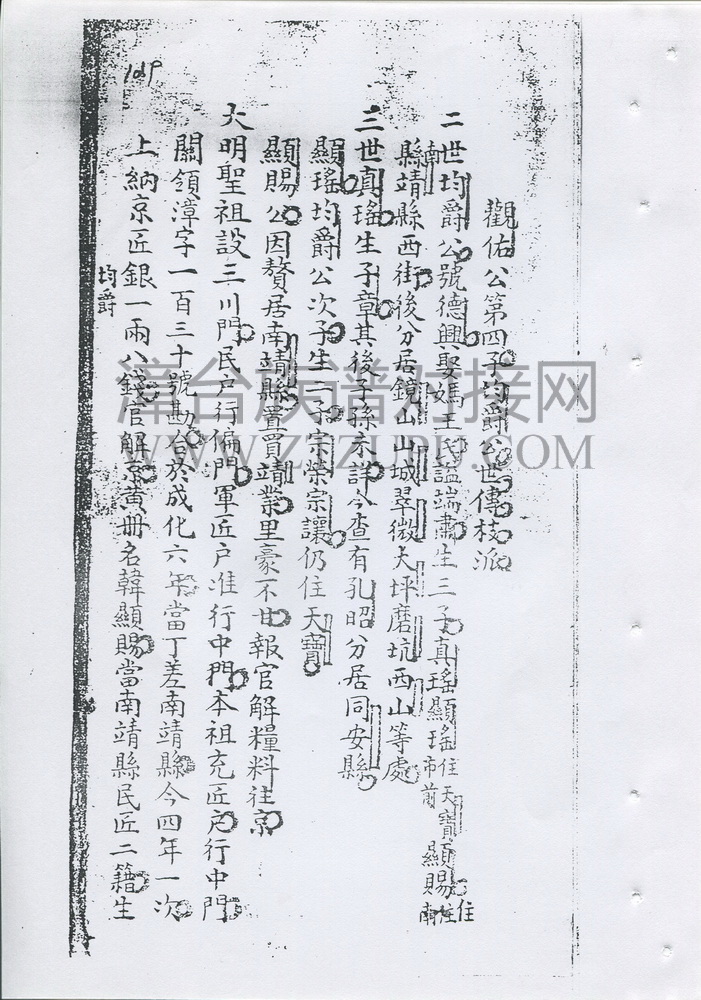 觀佑公第四子均爵公世傳枝派
二世均爵公號德興娶媽王氏謚端肅生三子真瑤顯瑤住天寶市前顯賜住南
南縣靖縣西街後分居鏡山山城翠微大坪磨坑西山等處
三世真瑤生子章其後子孫未詳今查有孔昭分居同安縣
顯瑤均爵公次子生二子宗榮宗讓仍住天寶
顯賜公因贅居南靖縣置買靖業里豪不甘報官解糧料往京
大明聖祖設三川門民戶行偏門軍匠戶准行中門本祖充匠戶行中門
關領漳字一百三十號勘合於成化六年當丁差南靖縣今四年一次
上納京匠銀一兩八錢官解京黃冊名韓顯賜當南靖縣民匠二籍生
均爵
109
漳台族谱对接网
WWW.ZTZUPU.COM